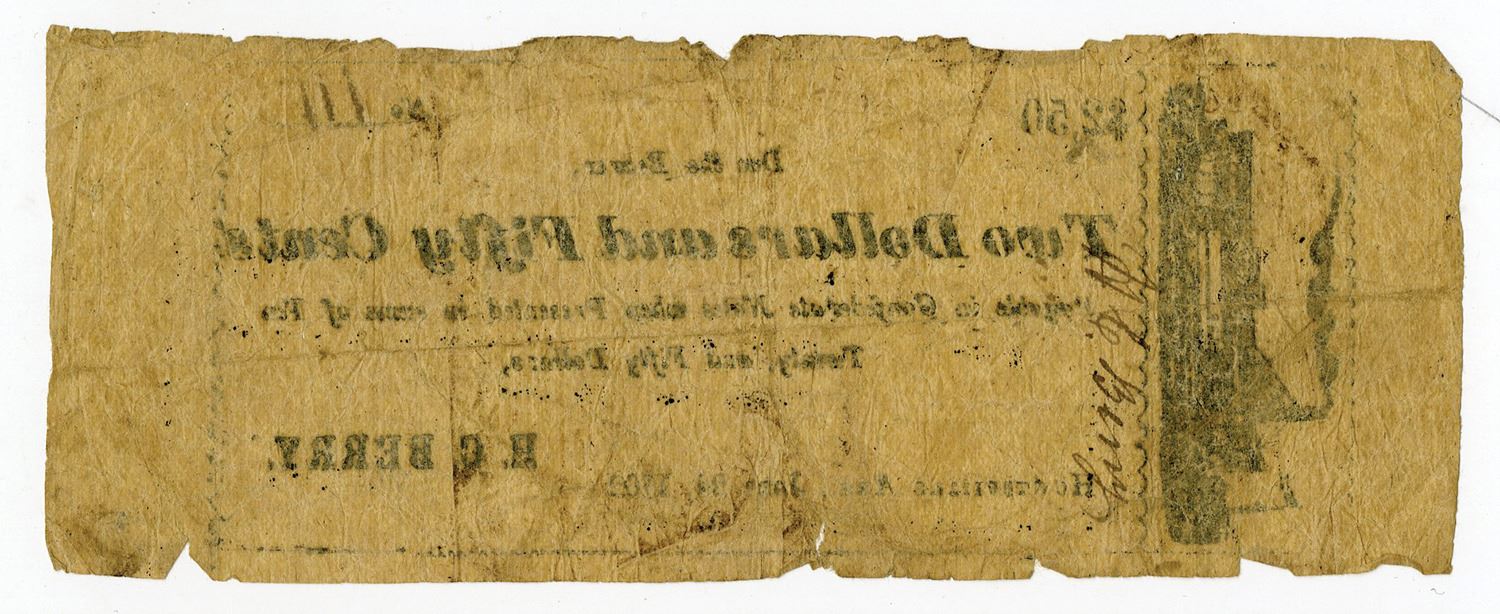 $2,50 No. 111
Due the Bearer,
Two Dollars and Fifty Cents
in Confederate Notes when Presented in sums of Ten
Twenty, and Fifty Dollars,
H. C BERRY.